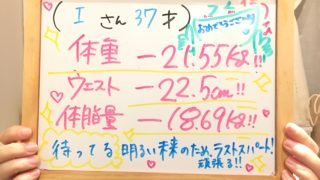 ( I さん 37才 )
おめでとうございます
体重 -21.55kg!!
ウエスト -22.5cm!!
体脂量 -18.69kg!!
待ってる 明るい未来のため、ラストスパート!
頑張る!!